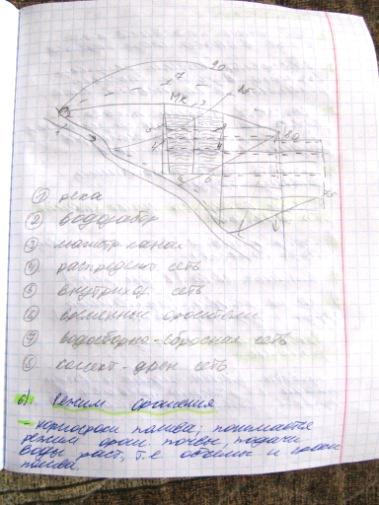 МК
① река
② водозабор
③ магистр канал
④ распределит сеть
⑤ внутрихоз. сеть
⑥ временные оросители
⑦ водосборно-сбросная сеть
⑧ collект-дрен сеть
б) Режим орошения
полива; понимается
режим орош. почвы, подачи
воды раст, т.е объемы и сроки
полива